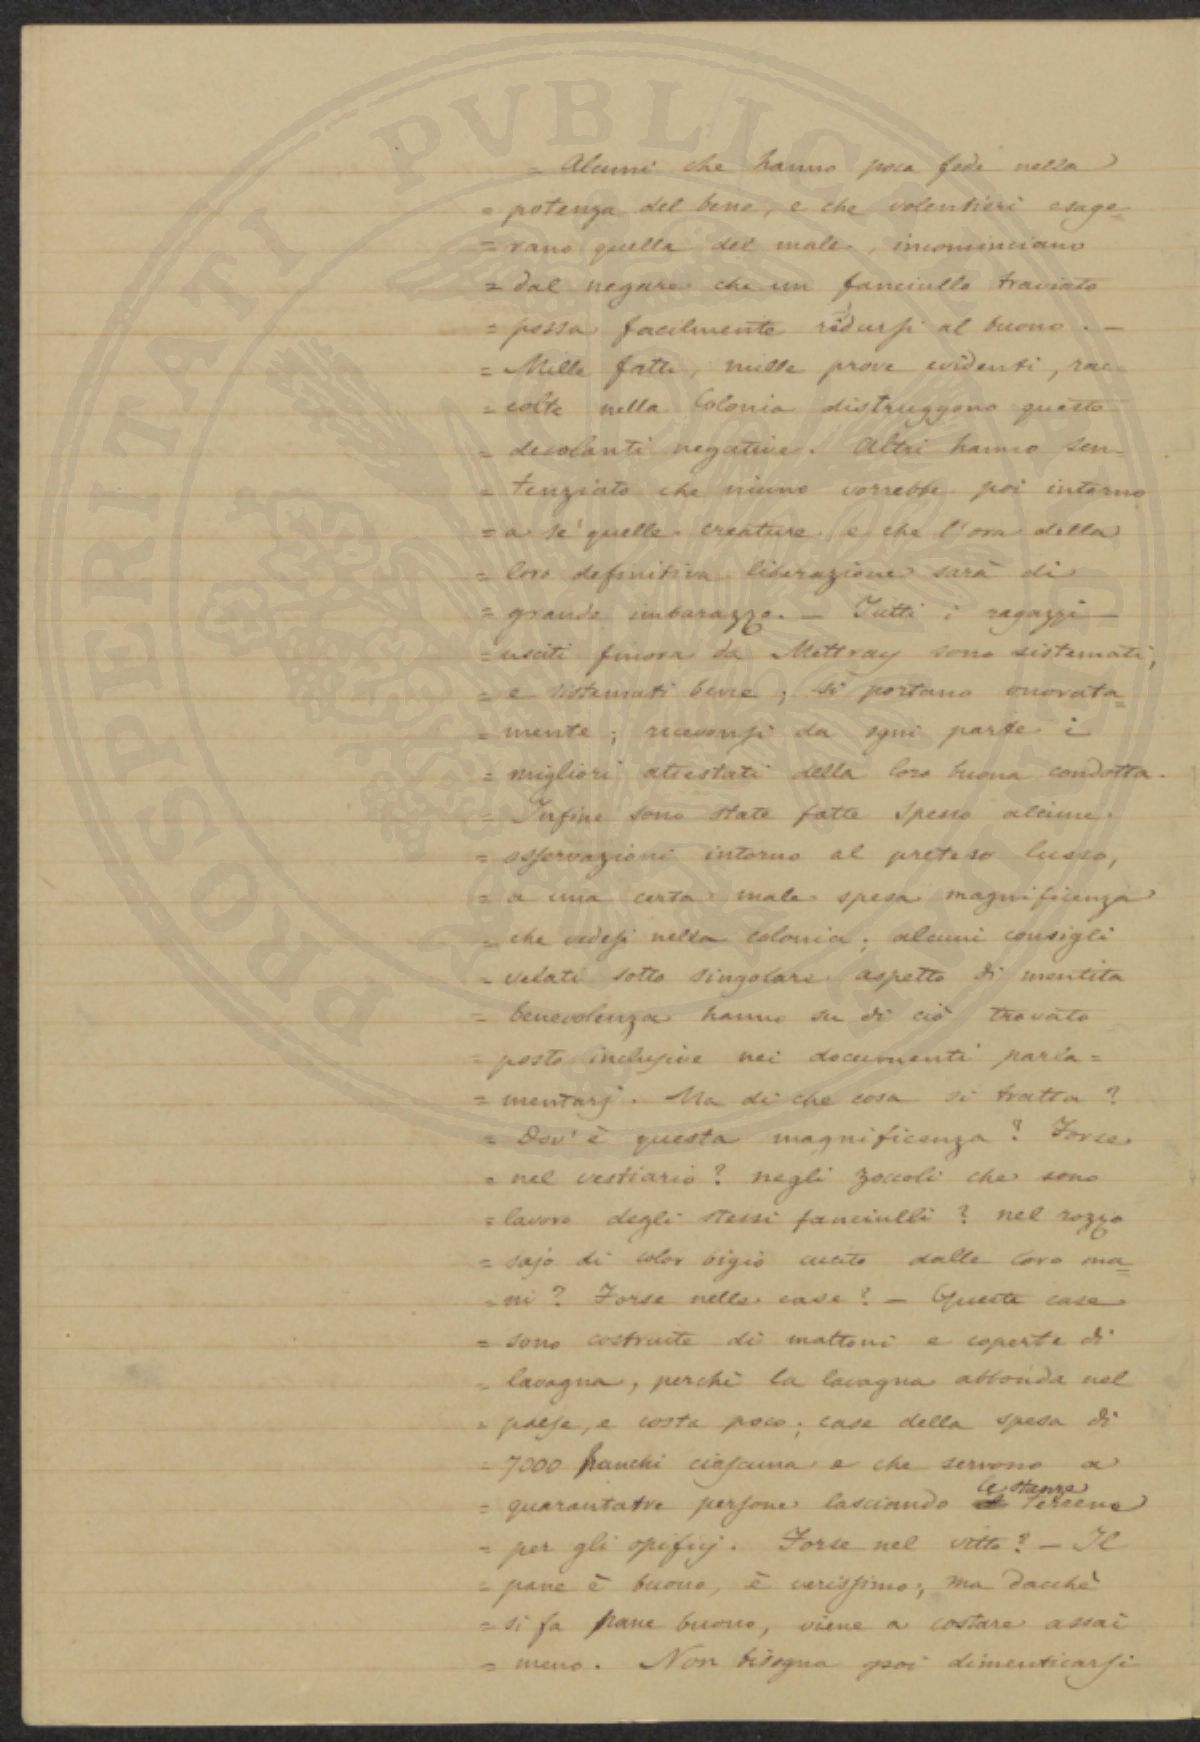 = Alcuni che hanno poca fede nella
= potenza del bene, e che volentieri esage=
= rano quella del male, incominciano
= dal negare che un fanciullo traviato
= possa facilmente ridursi al buono. —
= Mille fatti, mille prove evidenti, rac-
= colte nella Colonia distruggono queste
= desolanti negative. Altri hanno sen-
= tenziato che niuno vorrebbe poi intorno
= a se' quelle creature e che l'ora della
= loro definitiva liberazione sarà di
= grande imbarazzo. — Tutti i ragazzi —
= usciti finora da Mettray sono sistemati,
= e sistemati bene; si portano onorata=
= mente; ricevonsi da ogni parte i
= migliori attestati della loro buona condotta.
= Infine sono state fatte spesso alcune
= osservazioni intorno al preteso lusso,
= a una certa male spesa magnificenza
= che vedesi nella colonia; alcuni consigli
= velati sotto singolare aspetto di mentita
= benevolenza hanno su di ciò trovato
= posto inclusive nei documenti parla=
= mentarj. Ma di che cosa si tratta?
= Dov'è questa magnificenza? Forse
= nel vestiario? negli zoccoli che sono
= lavoro degli stessi fanciulli? nel rozzo
= sajo di color bigio cucito dalle loro ma=
= ni? Forse nelle case? — Queste case
= sono costruite di mattoni e coperte di
= lavagna, perchè la lavagna abbonda nel
= paese, e costa poco; case della spesa di
= 7000 franchi ciascuna e che servono a
= quarantatre persone lasciando le stanze terrene
= per gli opificj. Forse nel vitto? — Il
= pane è buono, è verissimo; ma dacchè
= si fa pane buono, viene a costare assai
= meno. Non bisogna poi dimenticarsi
PROSPERITATI PVBLICAE